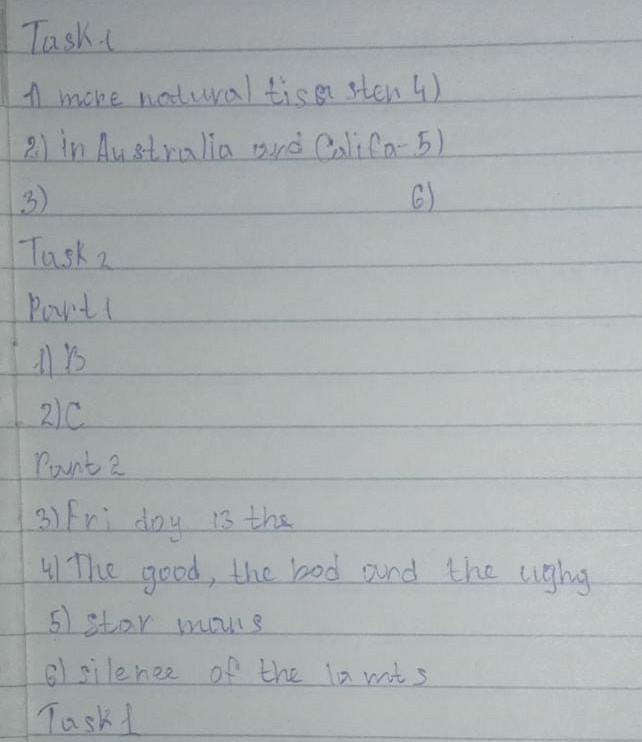 Task 1
1) more natural tisa sten 4)
2) in Australia and Califa- 5)
3) 6)
Task 2
Part 1
1) B
2) C
Part 2
3) Fri day 13 the
4) The good, the bad and the ughy
5) star mans
6) silence of the lamts
Task 1